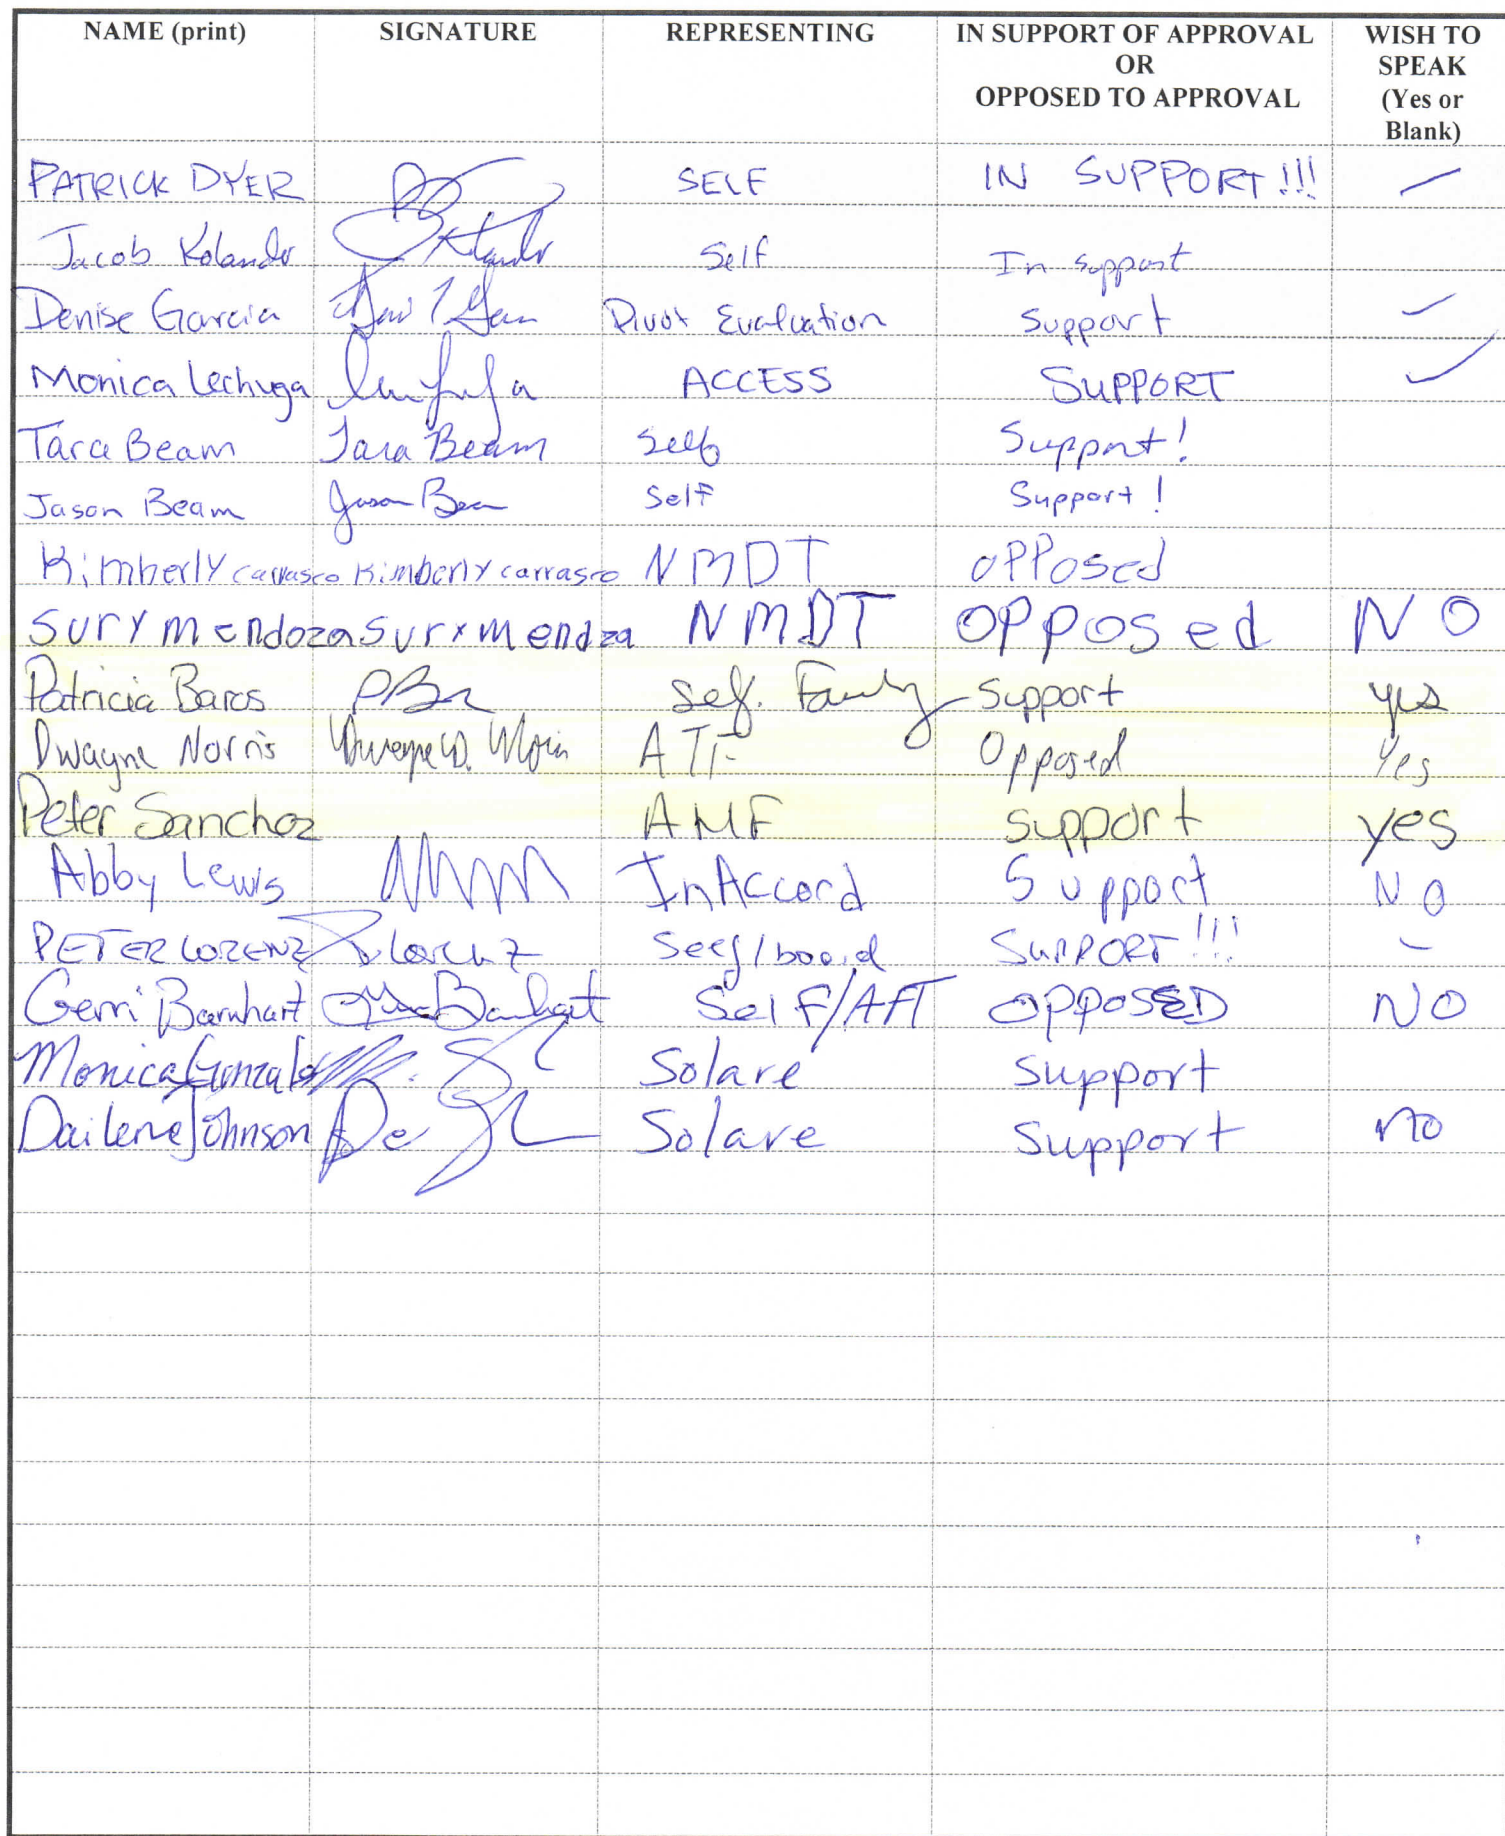 NAME (print) SIGNATURE REPRESENTING IN SUPPORT OF APPROVAL WISH TO
OR SPEAK
OPPOSED TO APPROVAL (Yes or
Blank)
PATRICK DYER SELF IN SUPPORT!!! –
Jacob Kolander Self In support
Denise Garcia Pivot Evaluation Support –
Monica Lechuga ACCESS SUPPORT ✓
Tara Beam Tara Beam Self Support!
Jason Beam Jason Beam Self Support!
Kimberly carrasco Kimberly carrasco NMDT opposed
Sury mendoza Sury mendza NMDT opposed NO
Patricia Baros Self. Family Support yes
Dwayne Norris ATF Opposed Yes
Peter Sanchez AMF support yes
Abby Lewis InAccord Support NO
PETER LORENZ Lorenz Self/board SUPPORT!!! –
Gerri Barnhart Barnhart Self/AFT OPPOSED NO
Monica Gonzales Solare Support
Dailene Johnson Solare Support no